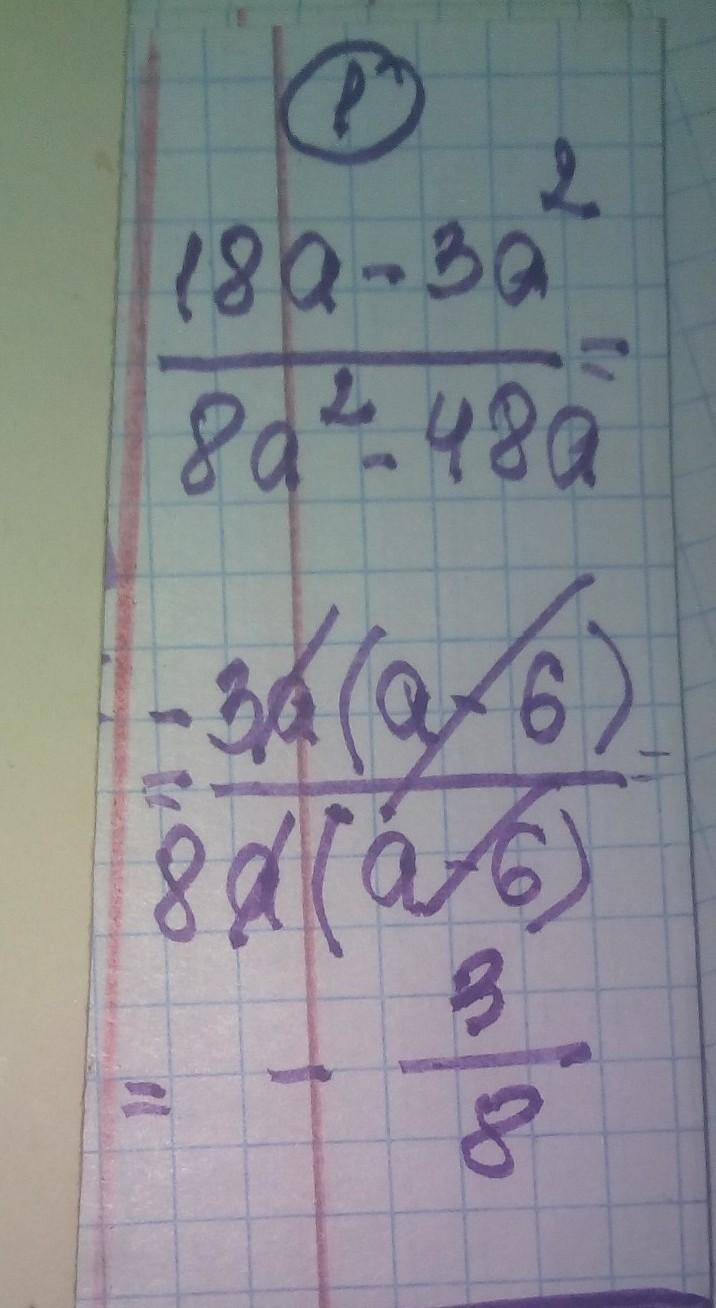 1
18a - 3a²
8a² - 48a =
= -3a(a - 6)
8a(a - 6) =
= - 3
8